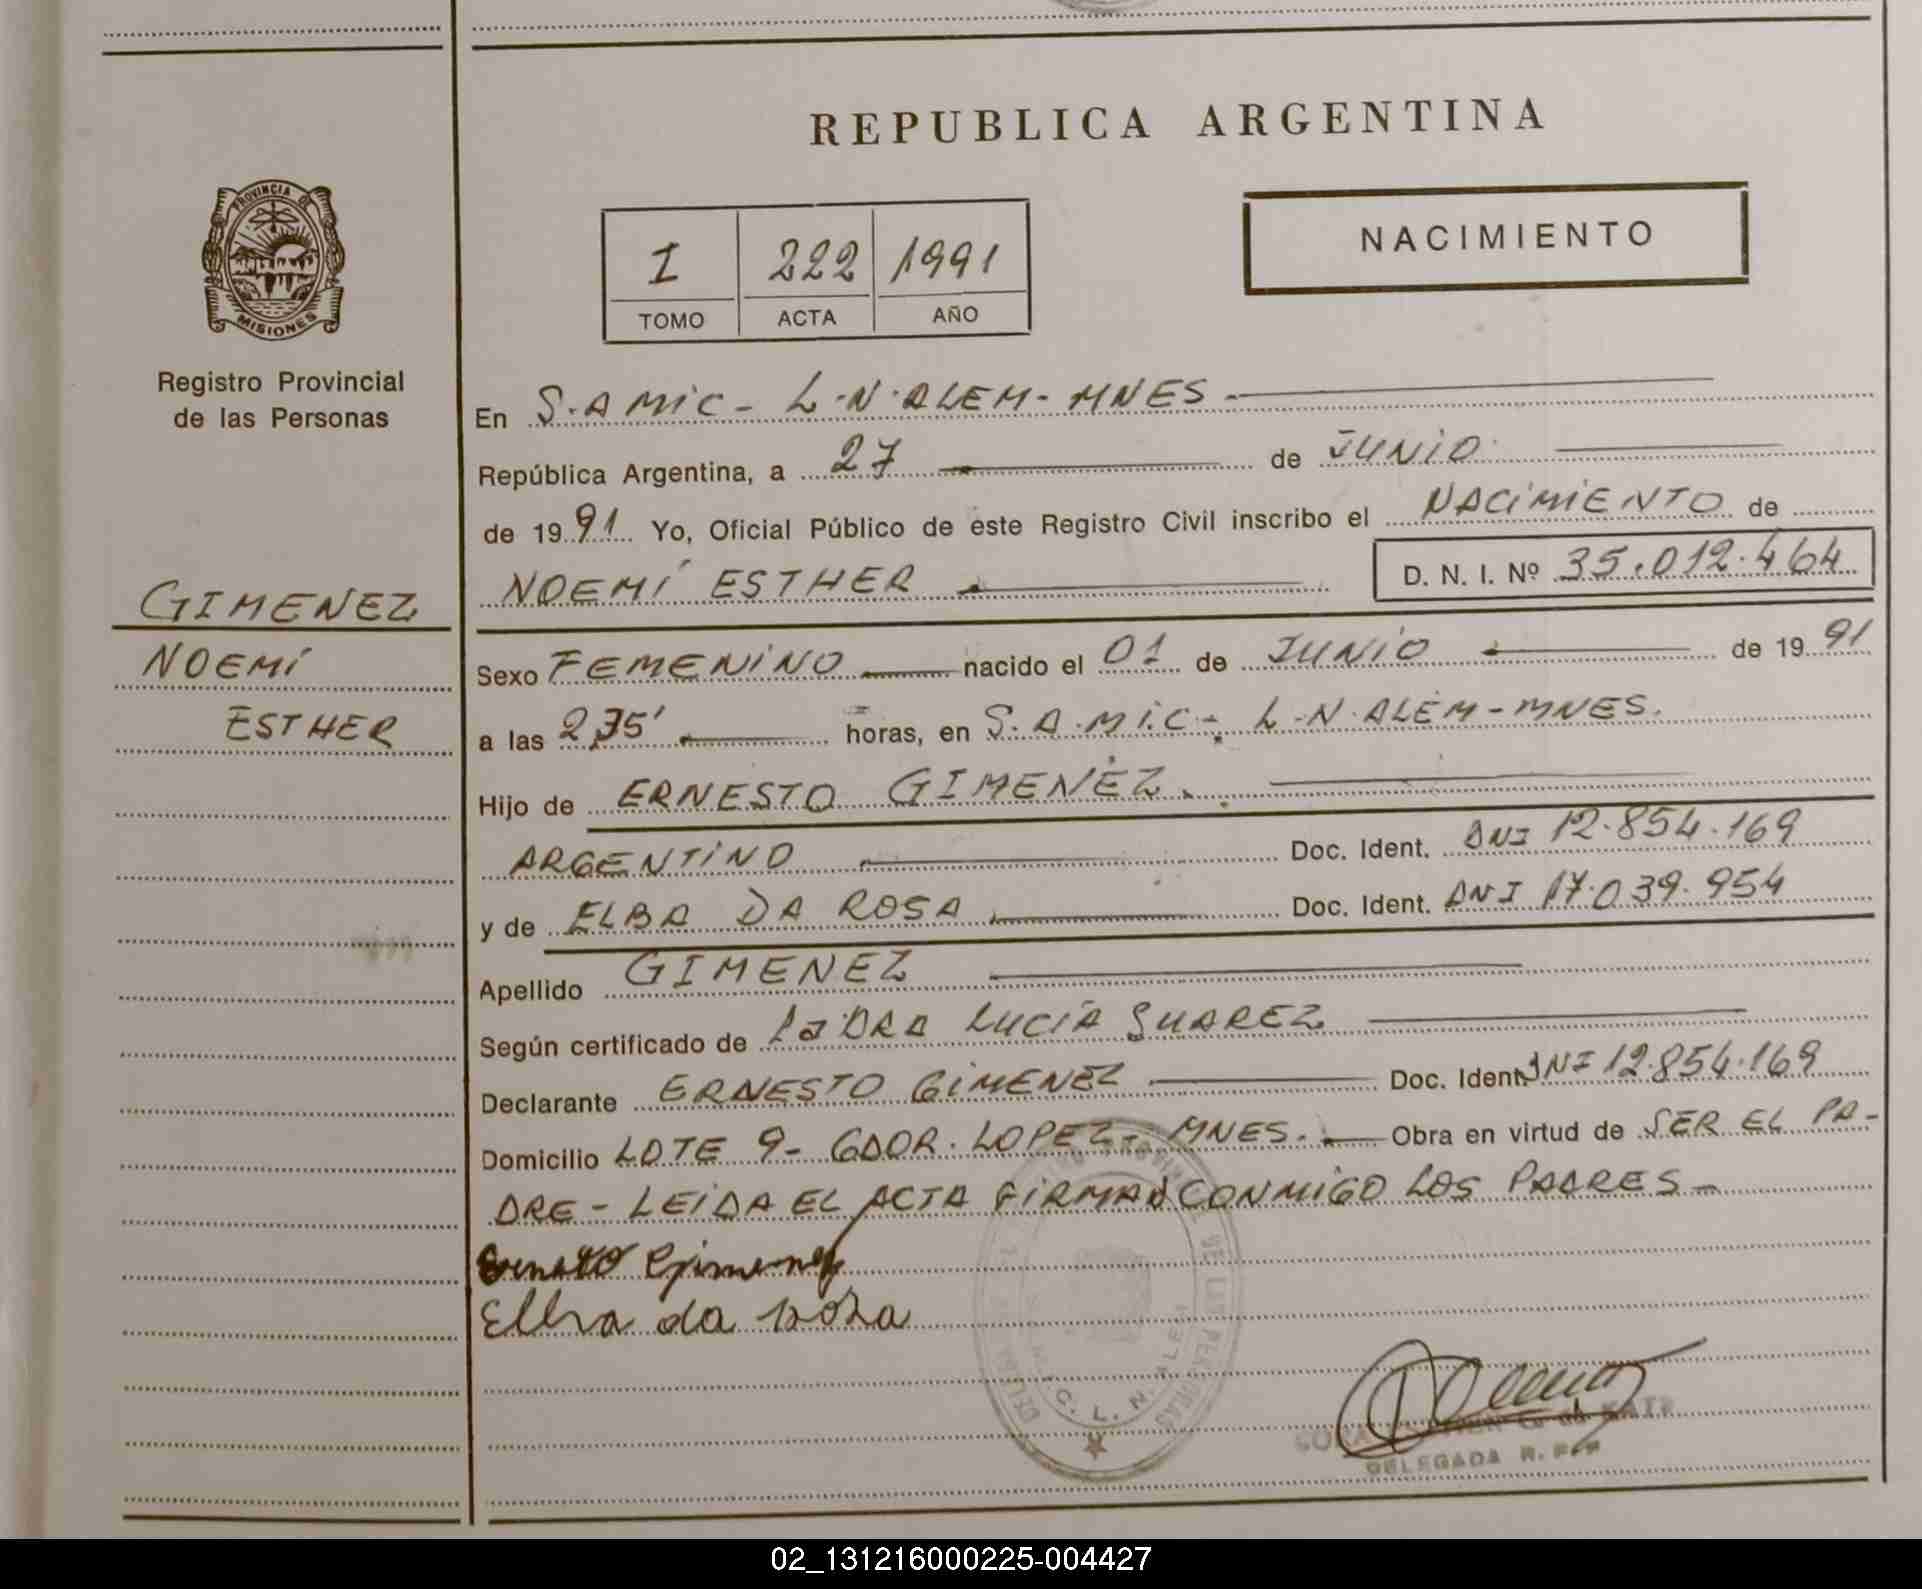 REPUBLICA ARGENTINA
PROVINCIA DE
MISIONES
Registro Provincial
de las Personas
I 222 1991
TOMO ACTA AÑO
NACIMIENTO
En S.A.MIC - L.N.ALEM - MNES -
República Argentina, a 27 de JUNIO
de 1991 Yo, Oficial Público de este Registro Civil inscribo el NACIMIENTO de
NOEMÍ ESTHER D. N. I. Nº 35.012.464
GIMENEZ
NOEMÍ
ESTHER
Sexo FEMENINO nacido el 01 de JUNIO de 1991
a las 2,35' horas, en S.A.MIC - L.N.ALEM - MNES.
Hijo de ERNESTO GIMENEZ.
ARGENTINO Doc. Ident. DNI 12.854.169
y de ELBA DA ROSA Doc. Ident. DNI 17.039.954
Apellido GIMENEZ
Según certificado de la DRA LUCÍA SUAREZ
Declarante ERNESTO GIMENEZ Doc. Ident. DNI 12.854.169
Domicilio LOTE 9 - GDOR. LOPEZ - MNES. Obra en virtud de SER EL PA-
DRE - LEIDA EL ACTA FIRMAN CONMIGO LOS PADRES -
Ernesto Gimenez
Elba da rosa
C. L. N. ALEM
DELEGADA R. P. P.
02_131216000225-004427